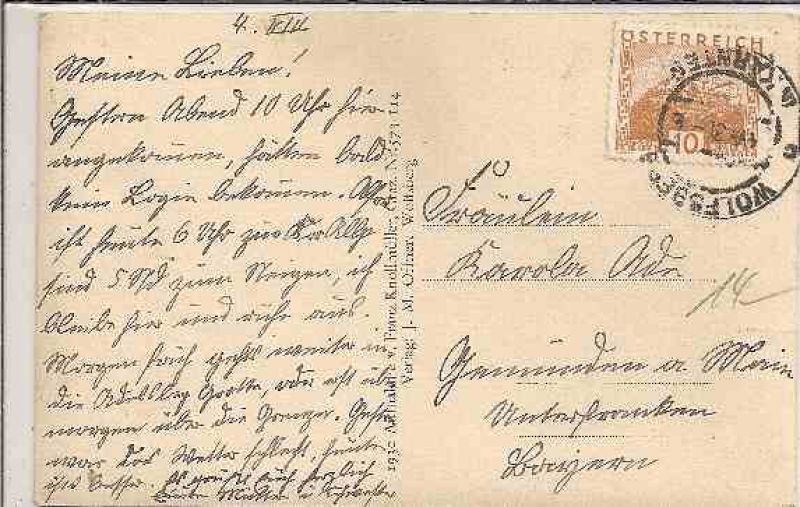 4. VIII
Meine Lieben!
Gestern Abend 10 Uhr hier
angekommen, hätten bald
kein Logie bekommen.
ist heute 6 Uhr zur
sind 5 Std zum Steigen, ich
bleibe hier und ruhe aus.
Morgen früh gehts weiter in
die Adelsberg Grotte, oder erst über
morgen über die Grenze. Gestern
war das Wetter schlecht, heute
ists besser. Es grüßt euch herzlich
Eure Mutter u. Schwester
1930 Aufnahme v. Franz Knollmüller, Graz, Nr. 573 114
Verlag: J. M. Wolfsberg
ÖSTERREICH
10
WOLFSBERG
KÄRNTEN
Fräulein
Karola
14
Gemünden a. Main
Unterfranken
Bayern